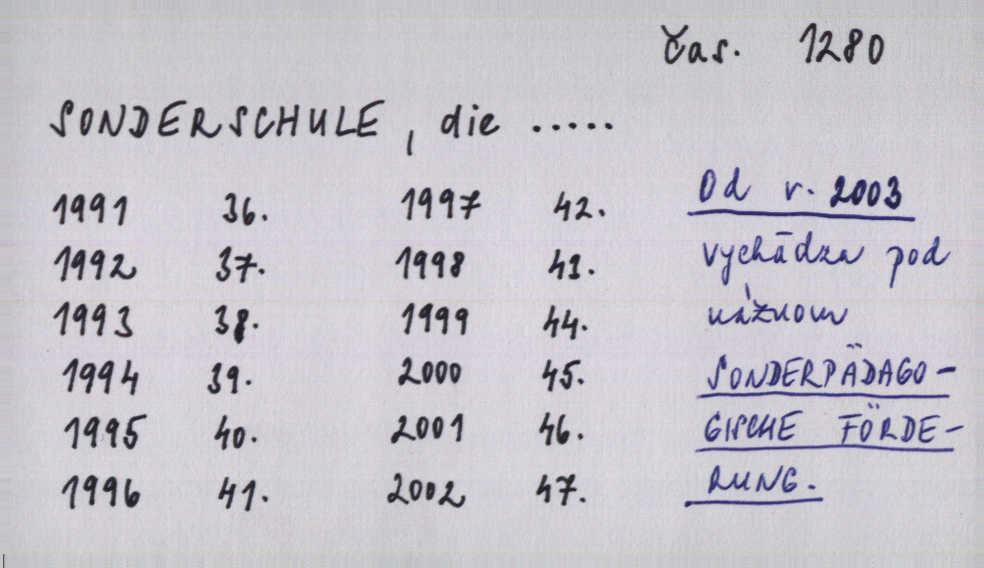 čas. 1280
SONDERSCHULE, die .....
1991 36. 1997 42.
1992 37. 1998 41.
1993 38. 1999 44.
1994 39. 2000 45.
1995 40. 2001 46.
1996 41. 2002 47.
Od r. 2003
vychádza pod
názvom
SONDERPÄDAGO-
GISCHE FÖRDE-
RUNG.